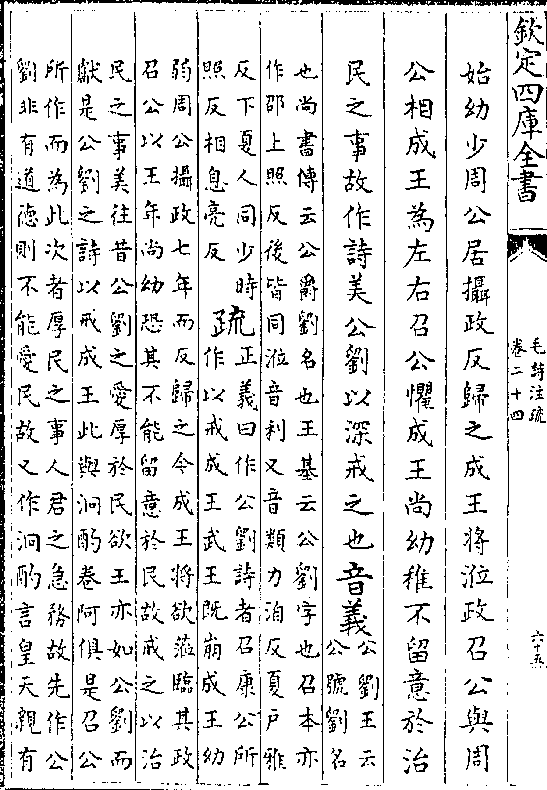 欽定四庫全書
毛詩注疏
卷二十四
六十五
始幼少周公居攝政反歸之成王將涖政召公與周
公相成王為左右召公懼成王尚幼稚不留意於治
民之事故作詩美公劉以深戒之也音義
公劉王云
公號劉名
也尚書傳云公爵劉名也王基云公劉字也召本亦
作邵上照反後皆同涖音利又音類力洎反夏戶雅
反下夏人同少時
照反相息亮反
疏
正義曰作公劉詩者召康公所
作以戒成王武王既崩成王幼
弱周公攝政七年而反歸之今成王將欲蒞臨其政
召公以王年尚幼恐其不能留意於民故戒之以治
民之事美往昔公劉之愛厚於民欲王亦如公劉而
獻是公劉之詩以戒成王此與泂酌卷阿俱是召公
所作而為此次者厚民之事人君之急務故先作公
劉非有道德則不能愛民故又作泂酌言皇天親有